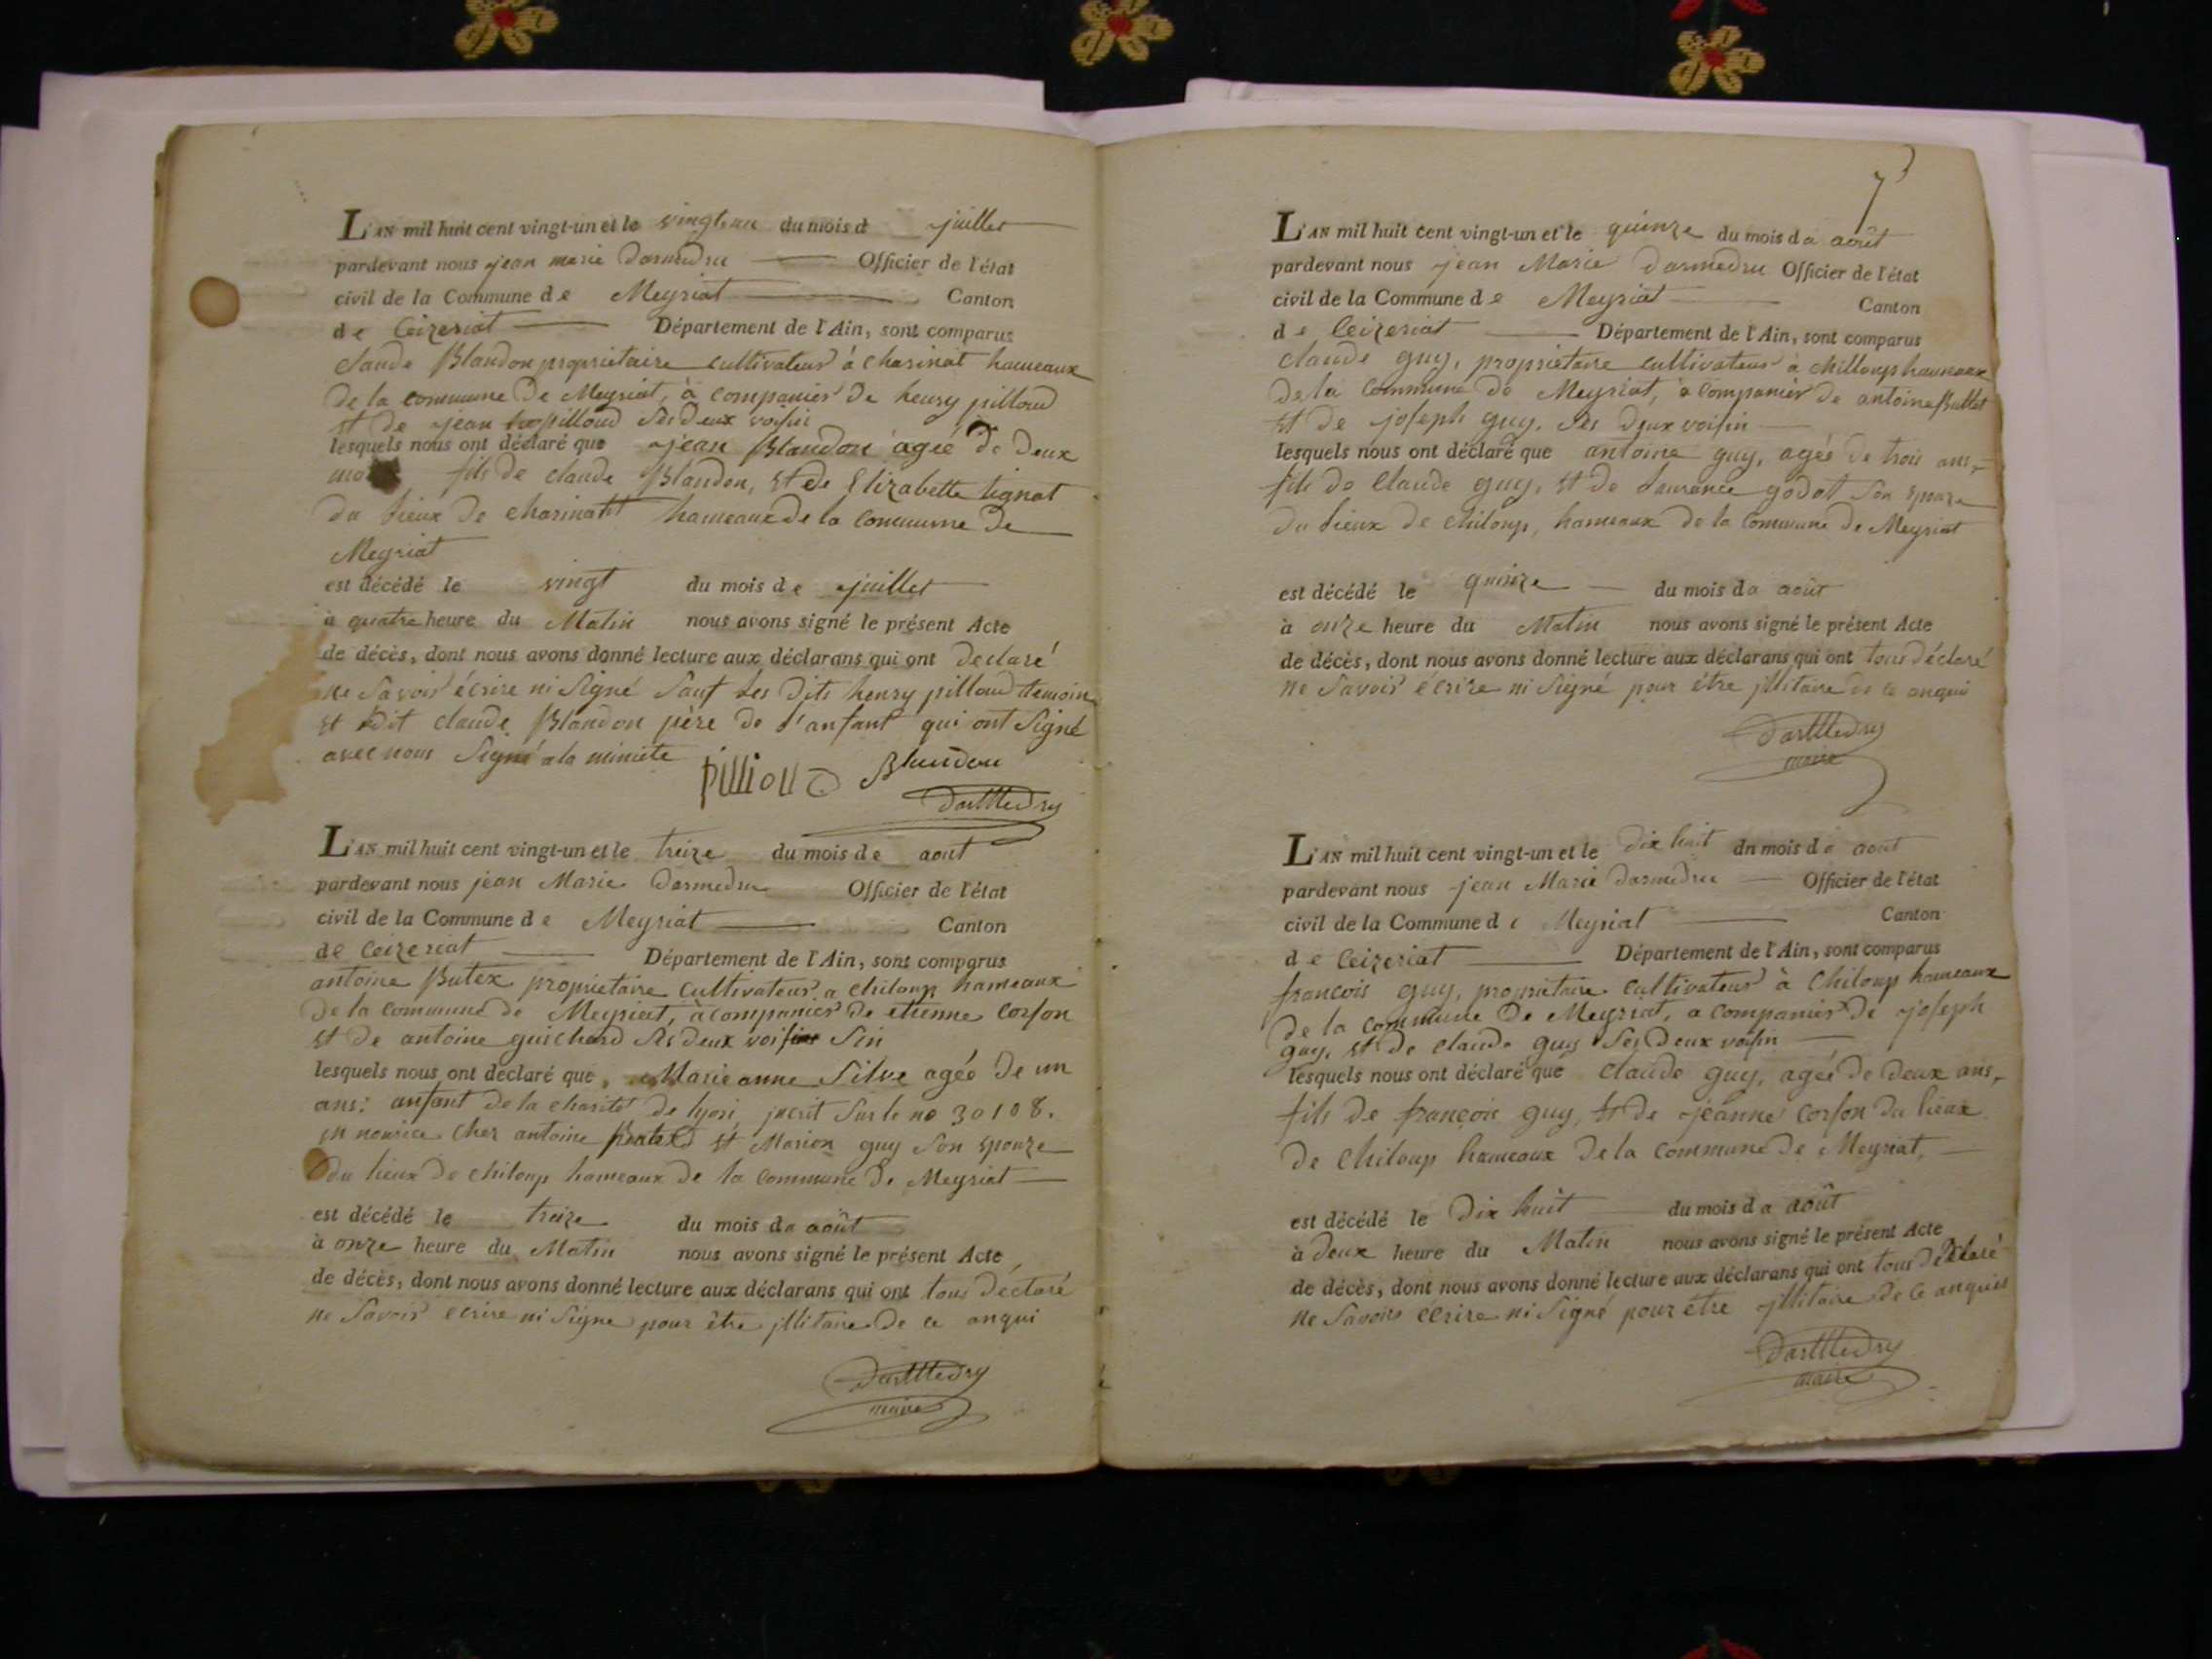 L'AN mil huit cent vingt-un et le vingt un du mois d juillet
pardevant nous jean marie darmedru Officier de l'état
civil de la Commune de Meyriat Canton
de Ceizeriat Département de l'Ain, sont comparus
claude Blandon propriétaire cultivateur à charinat hameaux
de la commune de Meyriat, à companier de henry pilloud
et de jean pilloud ses deux voisin
lesquels nous ont déclaré que jean Blandon agée de deux
fils de claude Blandon, et de Elizabette tignat
du lieux de charinatt hameaux de la commune de
Meyriat
est décédé le vingt du mois de juillet
à quatre heure du Matin nous avons signé le présent Acte
de décès, dont nous avons donné lecture aux déclarans qui ont declaré
ne savoir écrire ni Signé Sauf les dits henry pilloud temoin
et dit claude Blandon père de l'anfant qui ont Signé
avec nous Signé a la minute
pillioud Blandon
darMedry
L'AN mil huit cent vingt-un et le treize du mois de aout
pardevant nous jean Marie darmedru Officier de l'état
civil de la Commune de Meyriat Canton
de Ceizeriat Département de l'Ain, sont comparus
antoine Butex propriétaire cultivateur a chiloup hameaux
de la commune de Meyriat, à companier de etienne corson
et de antoine guichard ses deux voi sin
lesquels nous ont déclaré que Marie anne Silve agée de un
ans: anfant de la charité de lyon, jncrit Sur le no 30108.
en nourice cher antoine et Marion guy Son epouze
du lieux de chiloup hameaux de la commune de Meyriat
est décédé le treize du mois da août
à onze heure du Matin nous avons signé le présent Acte
de décès, dont nous avons donné lecture aux déclarans qui ont tous déclaré
ne Savoir ecrire ni Signe pour être jllitaire de ce anqui
darMedry
maire
7
L'AN mil huit cent vingt-un et le quinze du mois da août
pardevant nous jean Marie darmedru Officier de l'état
civil de la Commune de Meyriat Canton
de Ceizeriat Département de l'Ain, sont comparus
claude guy, propriétaire cultivateur à chilloup hameaux
de la commune de Meyriat, à companier de antoine Buttet
et de joseph guy, ses deux voisin
lesquels nous ont déclaré que antoine guy, agée de trois ans,
fils de claude guy, et de laurance godot son epouze
du lieux de chiloup, hameaux de la commune de Meyriat
est décédé le quinze du mois da août
à onze heure du Matin nous avons signé le présent Acte
de décès, dont nous avons donné lecture aux déclarans qui ont tous déclaré
ne Savoir écrire ni Signé pour être jllitaire de ce anqui
darMedry
maire
L'AN mil huit cent vingt-un et le dix huit du mois da aout
pardevant nous jean Marie darmedru Officier de l'état
civil de la Commune de Meyriat Canton
de Ceizeriat Département de l'Ain, sont comparus
francois guy, propriétaire cultivateur à Chiloup hameaux
de la commune de Meyriat, a companier de joseph
guy, et de claude guy ses deux voisin
lesquels nous ont déclaré que claude guy, agée de deux ans,
fils de françois guy, et de jeanne corson du lieux
de chiloup hameaux de la commune de Meyriat,
est décédé le dix huit du mois da août
à deux heure du Matin nous avons signé le présent Acte
de décès, dont nous avons donné lecture aux déclarans qui ont tous déclaré
ne Savoir écrire ni Signé pour être jllitaire de ce anquis
darMedry
maire